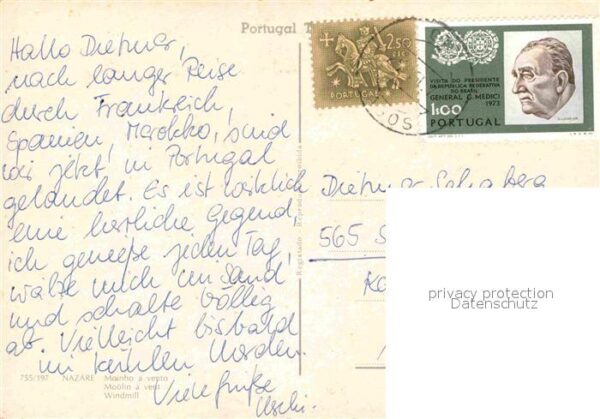 Portugal T
Hallo Dietmar,
nach langer Reise
durch Frankreich,
Spanien, Marokko, sind
wir jetzt in Portugal
gelandet. Es ist wirklich
eine herrliche Gegend,
ich genieße jeden Tag,
wälze mich im Sand
und schalte völlig
ab. Vielleicht bis bald
im kühlen Norden.
Viele Grüße
Uschi.
755/197 NAZARÉ Moinho a vento
Moulin à vent
Windmill
2$50
PORTUGAL
VISITA DO PRESIDENTE
DA REPÚBLICA FEDERATIVA
DO BRASIL
GENERAL G. MEDICI
1973
1$00
PORTUGAL
Dietmar
565 S
privacy protection
Datenschutz